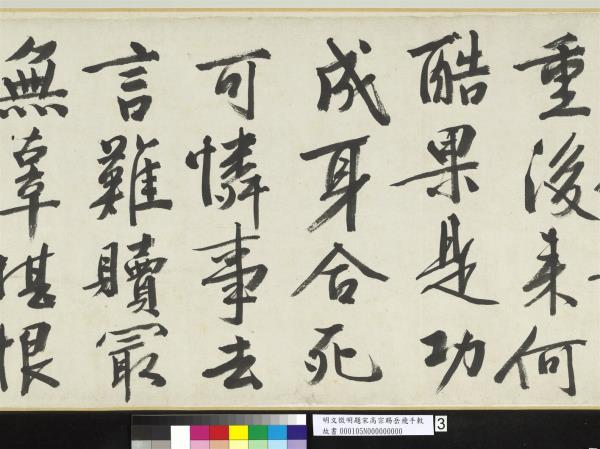 重後来何
酷果是功
成身合死
可憐事去
言難贖冣
無辜堪恨
明文徵明題宋高宗賜岳飛手敕
故書 000105N000000000
3